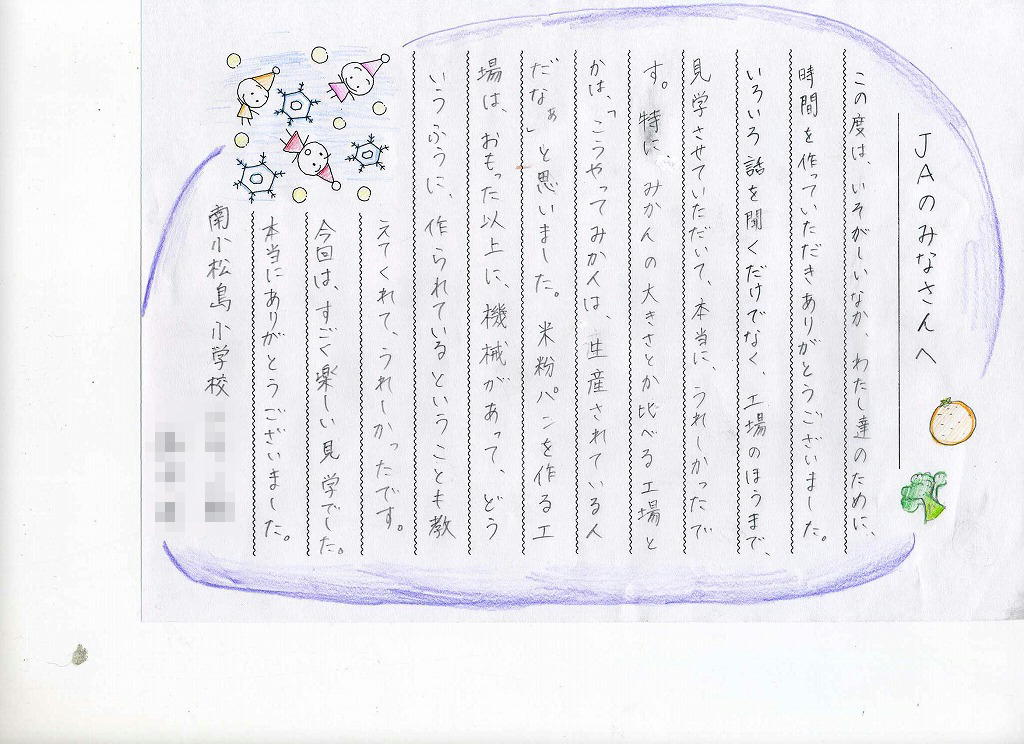 JAのみなさんへ
この度は、いそがしいなか、わたし達のために、
時間を作っていただきありがとうございました。
いろいろ話を聞くだけでなく、工場のほうまで、
見学させていただいて、本当に、うれしかったで
す。特に、みかんの大きさとか比べる工場と
かは、「こうやってみかんは、生産されているん
だなぁ」と思いました。米粉パンを作る工
場は、おもった以上に、機械があって、どう
いうふうに、作られているということも教
えてくれて、うれしかったです。
今回は、すごく楽しい見学でした。
本当にありがとうございました。
南小松島小学校